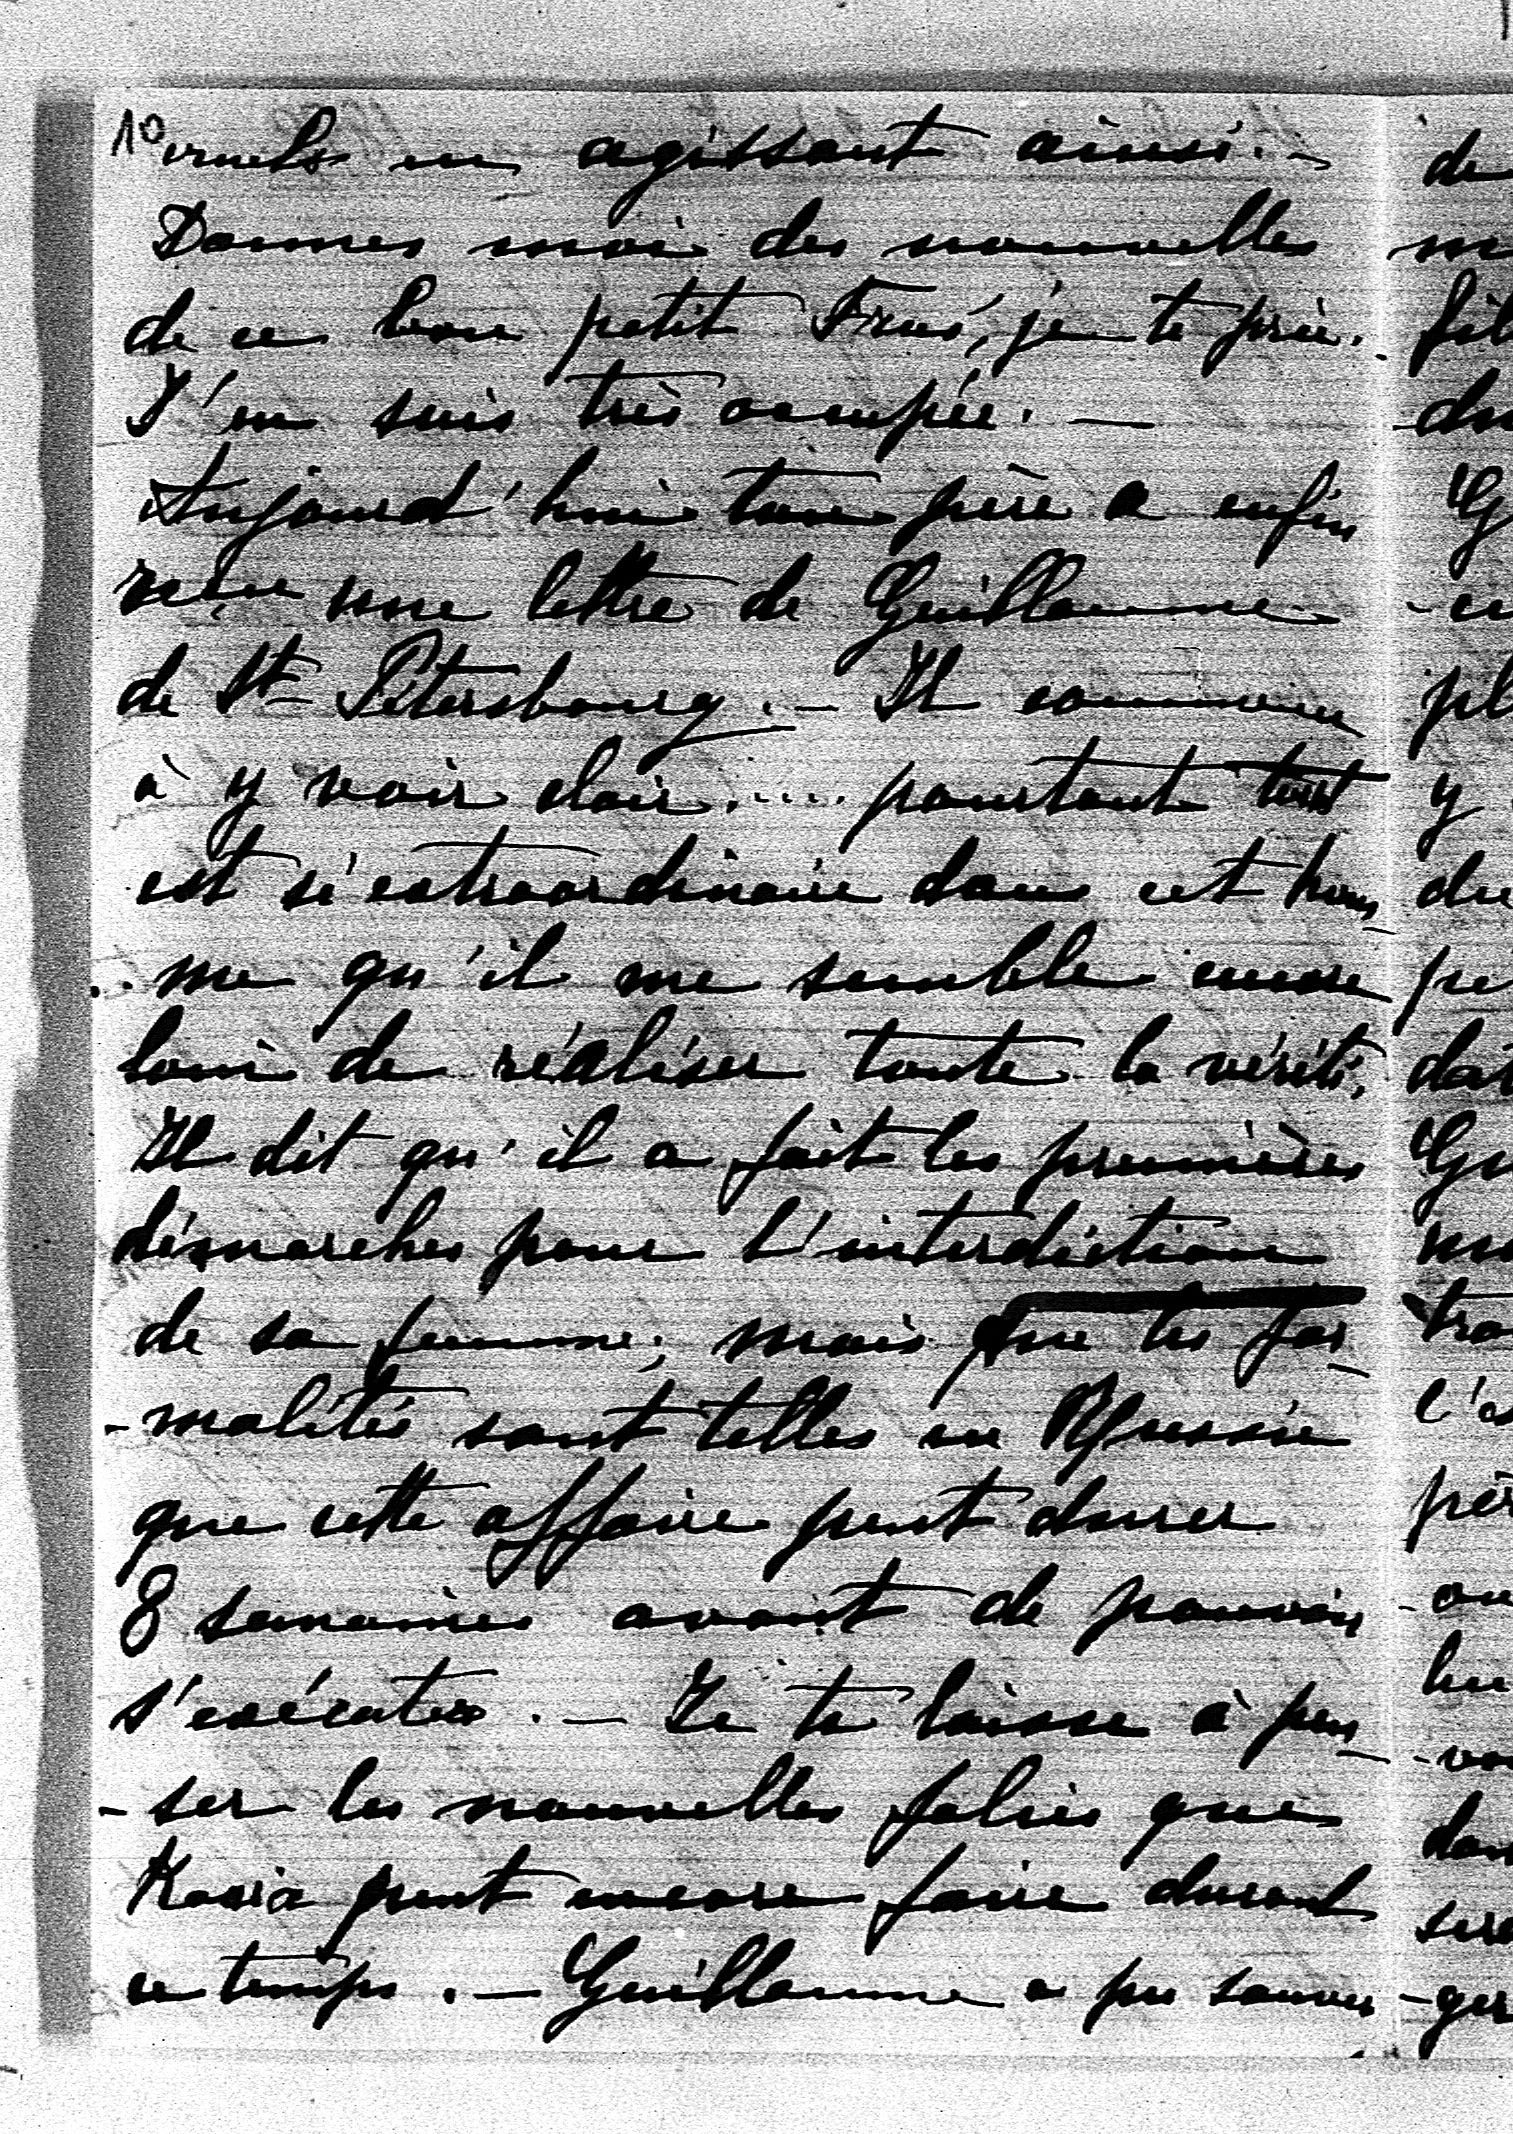 10
cruels en agissant ainsi. –
Donnes moi des nouvelles
de ce bon petit je te prie.
J'en suis très occupée. —
Aujourd'hui ton père a enfin
reçu une lettre de Guillaume
de St Pétersbourg. – Il commence
à y voir clair..... pourtant tout
est si extraordinaire dans cet hom
me qu'il me semble encore
loin de réaliser toute la vérité.
Il dit qu'il a fait les premières
démarches pour l'interdiction
de sa femme, mais que les for
-malités sont telles en Russie
que cette affaire peut durer
8 semaines avant de pouvoir
s'exécuter. – Je te laisse à pen
-ser les nouvelles folies que
peut encore faire durant
ce temps. – Guillaume a pu sauver
de
du
G
pl
y
du
pe
l'a
pèr
-ger